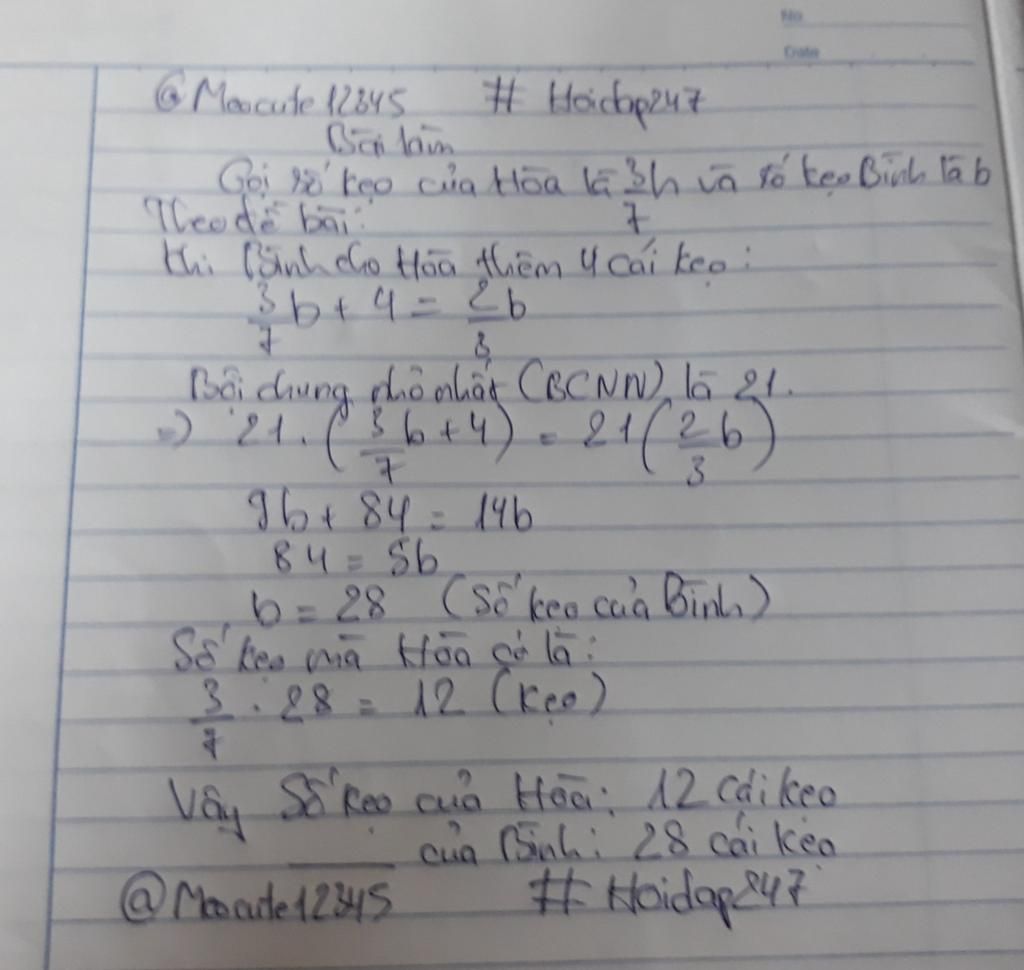 No
Date
@Moocute12345 # Hoidap247
Bài làm
Gọi số kẹo của Hòa là 3/7 h và số kẹo Bình là b
Theo đề bài:
Khi Bình cho Hòa thêm 4 cái kẹo:
3/7 b + 4 = 2/3 b
Bội chung nhỏ nhất (BCNN) là 21.
=> 21 . (3/7 b + 4) = 21 (2/3 b)
9b + 84 = 14b
84 = 5b
b = 28 (Số kẹo của Bình)
Số kẹo mà Hòa có là:
3/7 . 28 = 12 (kẹo)
Vậy Số kẹo của Hòa: 12 cái kẹo
_____ của Bình: 28 cái kẹo
@Moocute12345 # Hoidap247